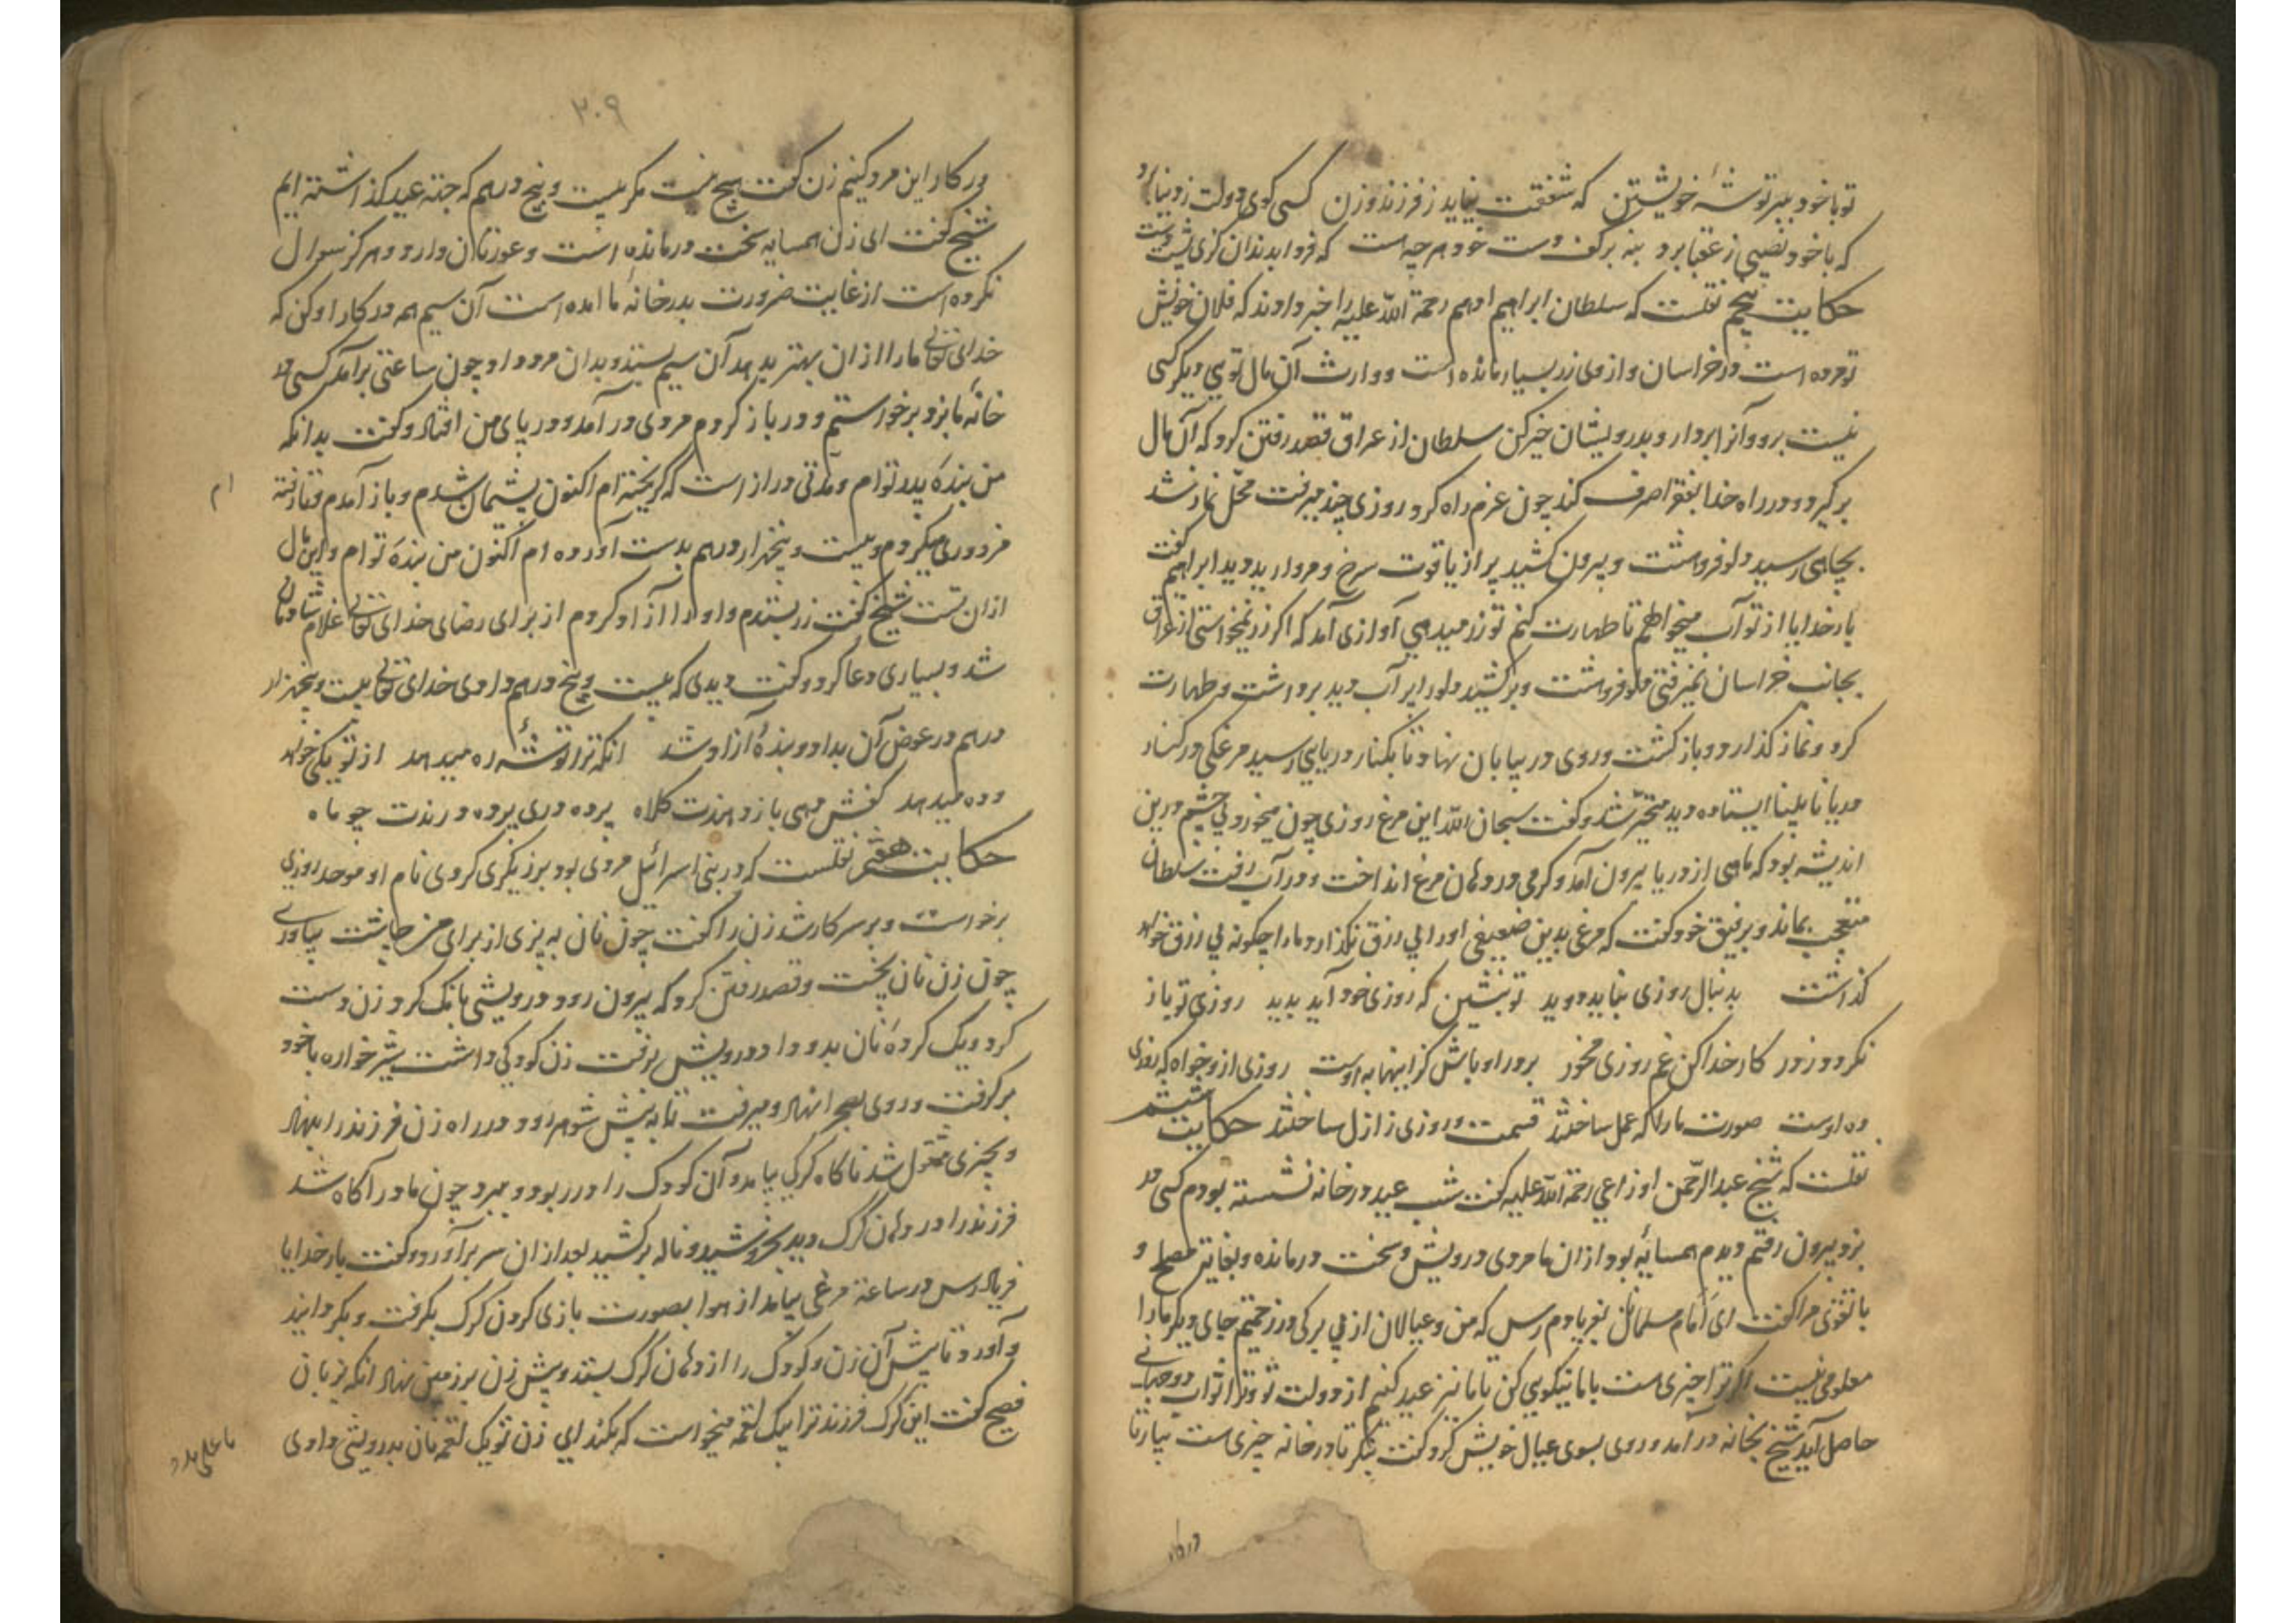 تو با خود ببر توشهٔ خویشتن که شفقت نیاید ز فرزند و زن کسی کوی دولت ز دنیا برد
که با خود نصیبی ز عقبا برد بنه بر کف دست خود هر چه هست که فردا بدندان گزی پشت دست
حکایت پنجم نقلست که سلطان ابراهیم ادهم رحمة الله علیه را خبر دادند که فلان خویش
تو مرده است در خراسان و از وی زر بسیار مانده است و وارث آن مال تویی دیگر کسی
نیست برو و آنرا بردار و بدرویشان خیر کن سلطان از عراق قصد رفتن کرد که آن مال
برگیرد و در راه خدا بفقرا صرف کند چون عزم راه کرد روزی چند میرفت محل نماز شد
بچاهی رسید دلو فروهشت و بیرون کشید پر از یاقوت سرخ و مروارید دید ابراهیم گفت
بار خدایا از تو آب میخواهم تا طهارت کنم تو زر میدهی آوازی آمد که اگر زر نمیخواستی از عراق
بجانب خراسان نمیرفتی دلو فروهشت و برکشید دلو را پر آب دید برداشت و طهارت
کرد و نماز گذارد و بازگشت و روی در بیابان نهاد تا بکنار دریایی رسید مرغکی در کنار
دریا نابینا ایستاده دید متحیر شد و گفت سبحان الله این مرغ روزی چون میخورد بی چشم درین
اندیشه بود که ماهی از دریا بیرون آمد و کرمی در دهان مرغ انداخت و در آب رفت سلطان
متعجب بماند و برفیق خود گفت که مرغی بدین ضعیفی او را بی رزق نگذارد ما را چگونه بی رزق خواهد
گذاشت بدنبال روزی نباید دوید تو بنشین که روزی خود آید پدید روزی تو باز
نگردد ز در کار خدا کن غم روزی مخور بر در او باش کز اینها به اوست روزی ازو خواه که روزی
ده اوست صورت ما را که عمل ساختند قسمت روزی ز ازل ساختند حکایت ششم
نقلست که شیخ عبد الرحمن اوزاعی رحمة الله علیه گفت شب عید در خانه نشسته بودم کسی در
بزد بیرون رفتم دیدم همسایهٔ بود از آن ما مردی درویش و سخت درمانده و بغایت مصلح و
با تقوی مرا گفت ای امام مسلمانان بفریادم رس که من و عیالان از بی برگی در زحمتیم جای دیگر ما را
معلومی نیست اگر ترا چیزی هست با ما نیکویی کن تا ما نیز عید کنیم از دولت تو و ترا ثواب دو جهانی
حاصل آید شیخ بخانه در آمد و روی بسوی عیال خویش کرد و گفت بنگر تا در خانه چیزی هست بیار تا
در کار
۳۰۹
در کار این مرد کنیم زن گفت هیچ نیست مگر بیست و پنج درهم که جهة عید گذاشته ایم
شیخ گفت ای زن همسایه سخت درمانده است و عورتان دارد و هرگز سوال
نکرده است از غایت ضرورت بدر خانهٔ ما آمده است آن سیم هم در کار او کن که
خدای تعالی ما را از آن بهتر بدهد آن سیم بستد و بدان مرد داد چون ساعتی برآمد کسی در
خانهٔ ما بزد برخواستم و در باز کردم مردی در آمد و در پای من افتاد و گفت بدانکه
من بندهٔ پدر توام و مدتی دراز است که گریخته ام اکنون پشیمان شدم و باز آمدم و تا رفته
ام
مزدوری میکردم و بیست و پنجهزار درهم بدست آورده ام اکنون من بندهٔ توام و این مال
از آن تست شیخ گفت زر بستدم و او را آزاد کردم از برای رضای خدای تعالی غلام شادمان
شد و بسیاری دعا کرد و گفت دیدی که بیست و پنج درهم دادی خدای تعالی بیست و پنجهزار
درهم در عوض آن بداد و بندهٔ آزاد شد آنکه ترا توشهٔ ره میدهد از تو یکی خواهد
و ده میدهد کفش دهی باز دهندت کلاه پرده دری پرده درندت چو ماه
حکایت هفتم نقلست که در بنی اسرائیل مردی بود برزیگری کردی نام او موحد روزی
برخواست و بر سر کار شد زن را گفت چون نان بپزی از برای من چاشت بیاوری
چون زن نان پخت و قصد رفتن کرد که بیرون رود درویشی بانگ کرد زن دست
کرد و یک گردهٔ نان بدو داد درویش برفت زن کودکی داشت شیرخواره با خود
برگرفت و روی بصحرا نهاد و میرفت تا به پیش شوهر رود در راه زن فرزند را بنهاد
و بچیزی مشغول شد ناگاه گرگی بیامد و آن کودک را در ربود و ببرد چون مادر آگاه شد
فرزند را در دهان گرگ دید بخروشید و ناله برکشید بعد از آن سر برآورد و گفت بار خدایا
فریاد رس در ساعة مرغی بیامد از هوا بصورت بازی گردن گرگ بگرفت و بگردانید
و آورد تا پیش آن زن و کودک را از دهان گرگ بستد و پیش زن بر زمین نهاد آنگه بزبان
فصیح گفت این گرگ فرزند ترا یک لقمه میخواست که بکند ای زن تو یک لقمه نان بدرویشی دادی
یا علی مدد